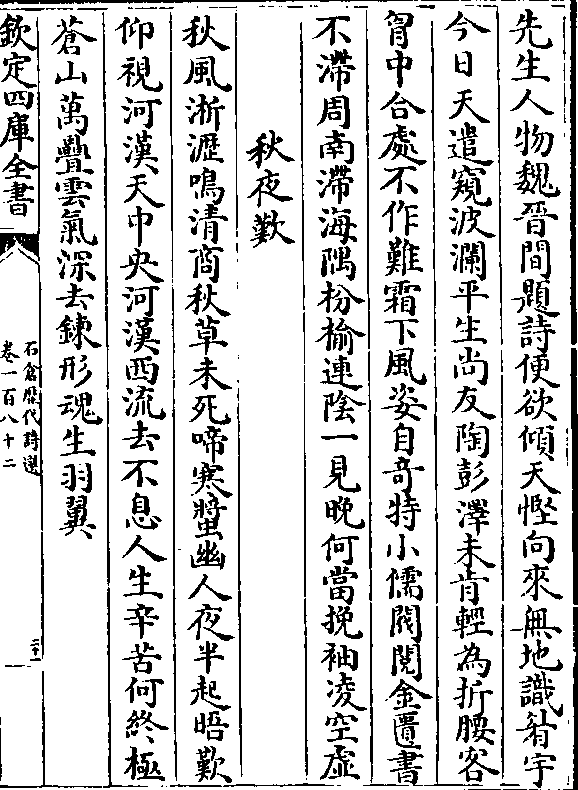 先生人物魏晉間題詩便欲傾天慳向來無地識眉宇
今日天遣窺波瀾平生尚友陶彭澤未肯輕為折腰客
胷中合處不作難霜下風姿自竒特小儒閱閱金匱書
不滯周南滯海隅枌榆連陰一見晩何當挽袖凌空虛
秋夜歎
秋風淅瀝鳴清商秋草未死啼寒螿幽人夜半起晤歎
仰視河漢天中央河漢西流去不息人生辛苦何終極
蒼山萬疊雲氣深去鍊形魂生羽翼
欽定四庫全書
石倉歷代詩選
卷一百八十二